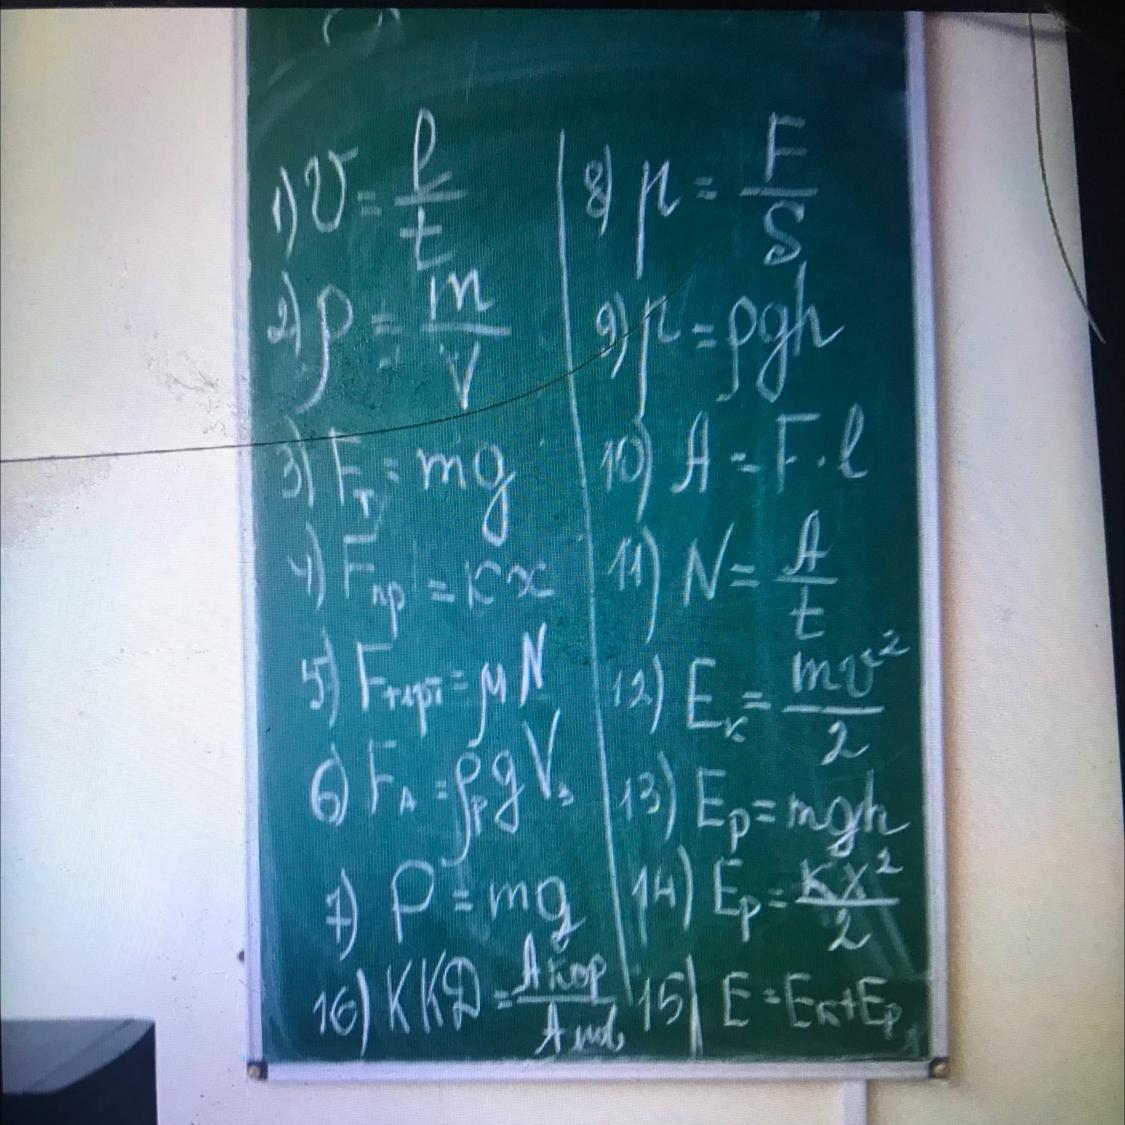 1) v = l/t
2) ρ = m/V
3) Fт = mg
4) Fпр = кx
5) Fтертя = μN
6) FA = ρр g Vз
7) P = mg
16) ККД = Aкор/A
8) p = F/S
9) p = ρgh
10) A = F·l
11) N = A/t
12) Eк = mv²/2
13) Ep = mgh
14) Ep = кx²/2
15) E = Eк+Ep